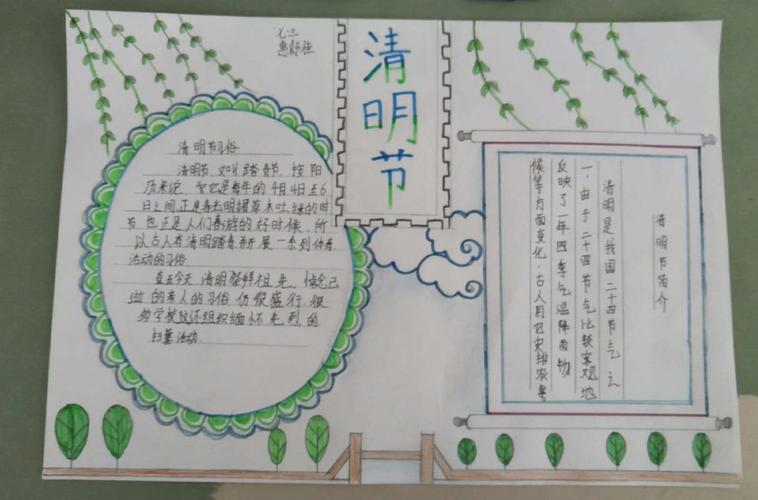 七二
清明节
清明节习俗
清明节,又叫踏青节,按阳
历来说,它是每年的4月4日至6
日之间,正是春光明媚草木吐绿的时
节,也正是人们春游的好时候,所
以古人有清明踏青,并开展一系列体育
活动的习俗
直至今天,清明祭拜祖先,悼念已
逝的亲人的习俗仍很盛行,很
多学校还组织缅怀先烈的
扫墓活动.
清明节简介
清明是我国二十四节气之
一.由于二十四节气比较客观地
反映了一年四季气温降雨物
候等方面变化.古人用它安排农事